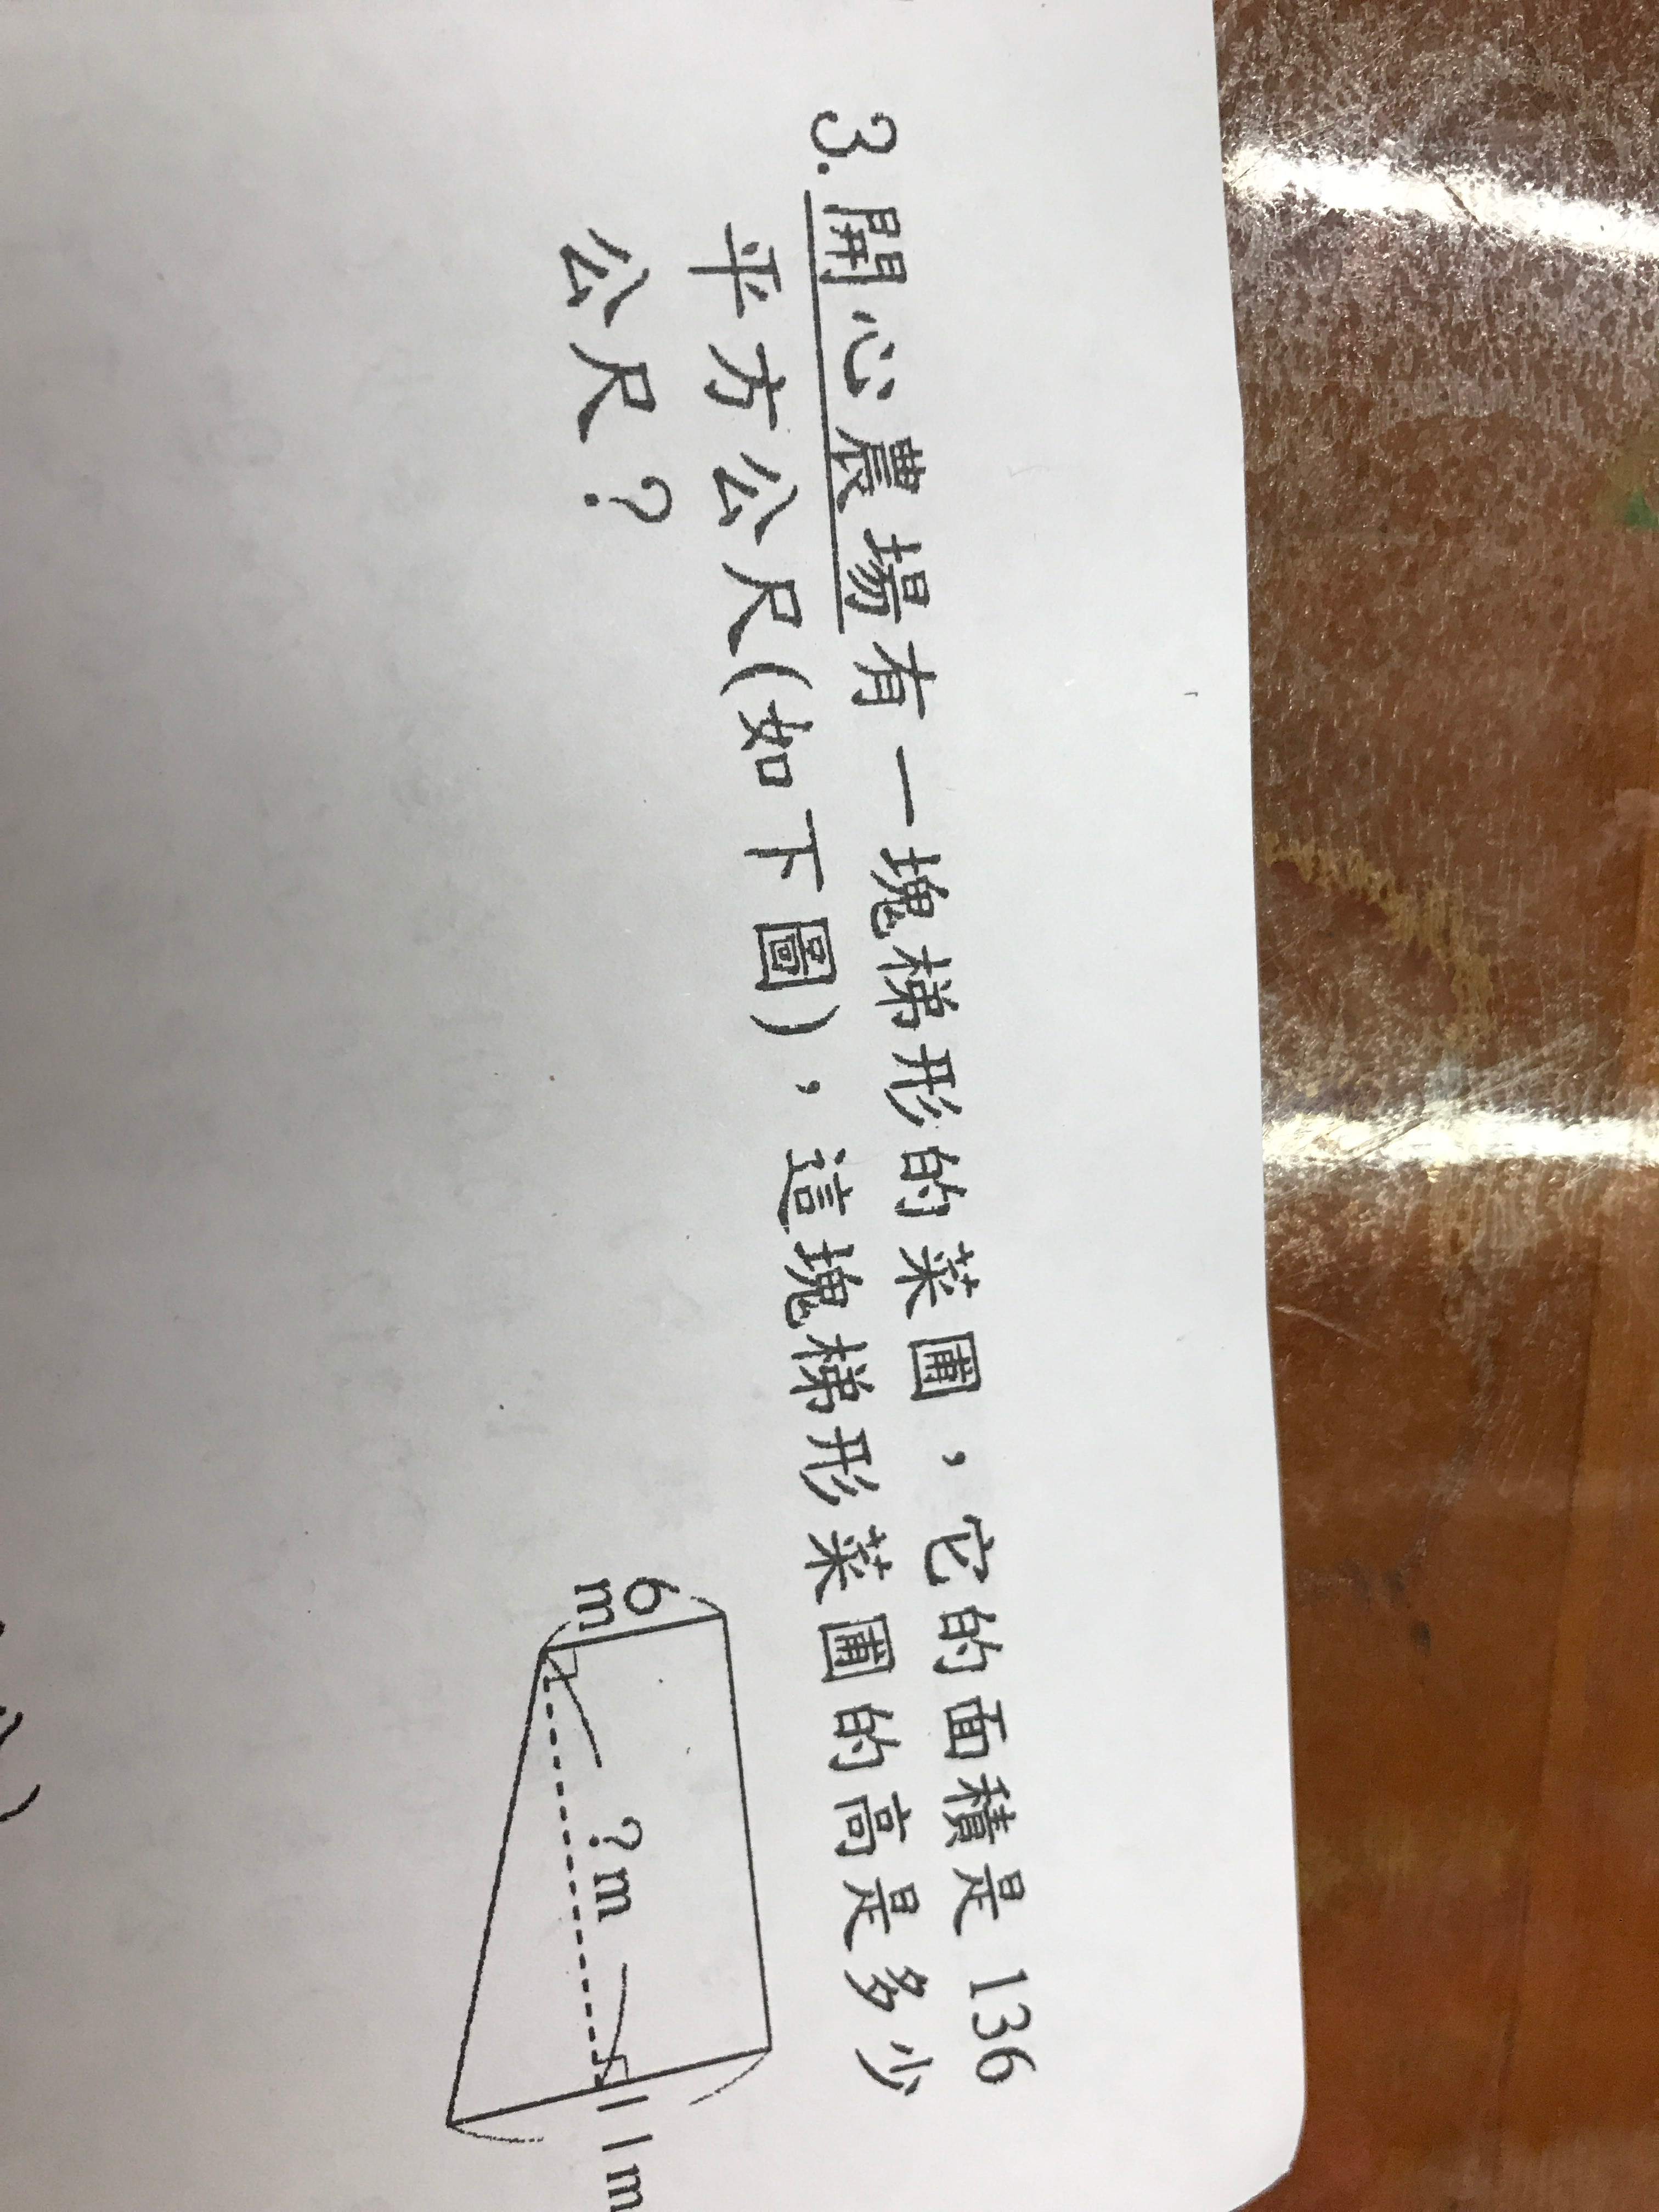 3.開心農場有一塊梯形的菜圃，它的面積是 136
平方公尺(如下圖)，這塊梯形菜圃的高是多少
公尺？
6
m
?m
11m